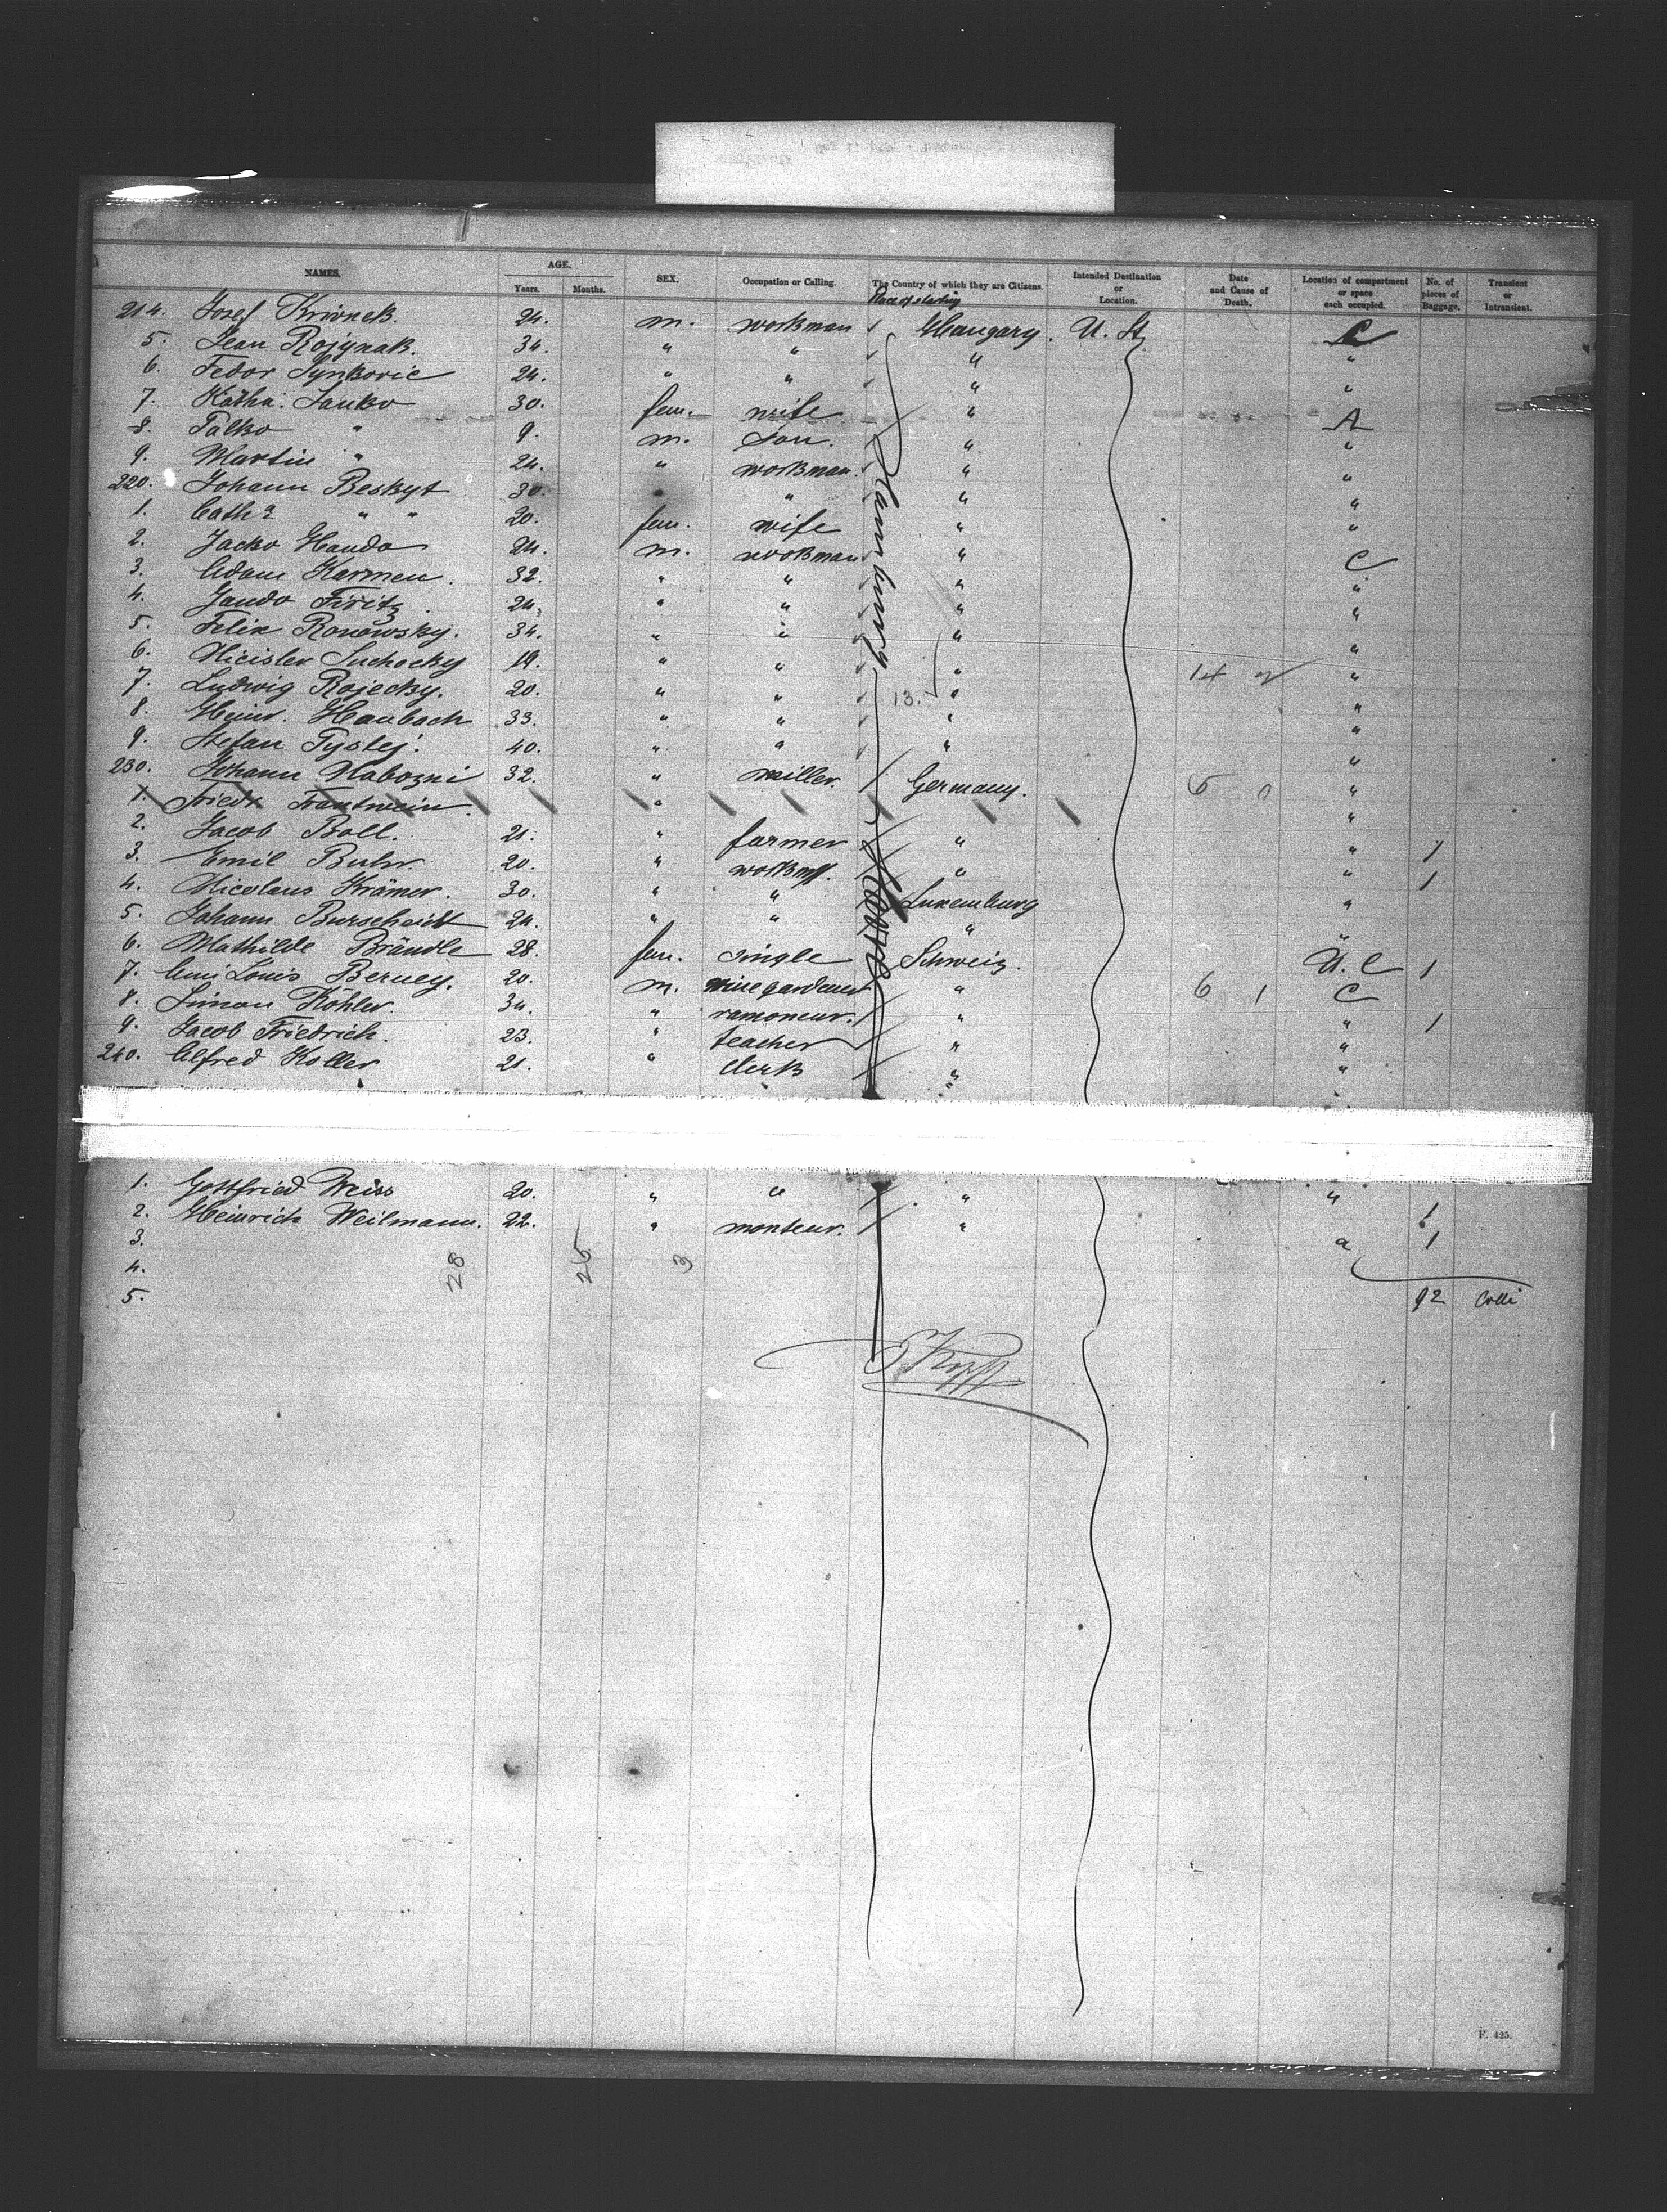 NAMES. AGE. Years. Months. SEX. Occupation or Calling. The Country of which they are Citizens. Intended Destination or Location. Date and Cause of Death. Location of compartment or space each occupied. No. of pieces of Baggage. Transient or Intransient.
Place of starting
214. Josef Krivnek. 24. m. workman Hungary. U. St. C
5. Jean Rojynak. 34. " " " "
6. Fedor Synkovic 24. " " " "
7. Kätha. Janko 30. fem. wife " A
8. Palko " 9. m. son. " "
9. Martin " 24. " workman. " "
220. Johann Beskyt 30. " " " "
1. Catha " " 20. fem. wife " "
2. Jacko Handa 24. m. workman " C
3. Adam Karmen. 32. " " " "
4. Jando Firitz. 24. " " " "
5. Felix Ronowsky. 34. " " " "
6. Micislev Suchocky 19. " " " 14 2 "
7. Ludwig Rojecky. 20. " " 13. " "
8. Heinr. Haubach 33. " " " "
9. Stefan Tystej. 40. " " " "
230. Johann Nabozni 32. " miller. Germany. 6 0 "
1. Friedr. Trautwein. " "
2. Jacob Boll. 21. " farmer " " 1
3. Emil Buhr. 20. " workm. " " 1
4. Nicolaus Krämer. 30. " " Luxemburg "
5. Johann Burscheidt 24. " " " "
6. Mathilde Brändle 28. fem. single Schweiz. U. C 1
7. Ami Louis Berney. 20. m. wine gardener " 6 1 C
8. Simon Köhler. 34. " ramoneur. " " 1
9. Jacob Friedrich. 23. " teacher " "
240. Alfred Koller 21. " clerk " "
Hamburg
Havre
1. Gottfried Weiss 20. " " " " 1
2. Heinrich Weilmann. 22. " monteur. " " 1
3.
4. 28 25 3
5. 92 Colli
F. 425.